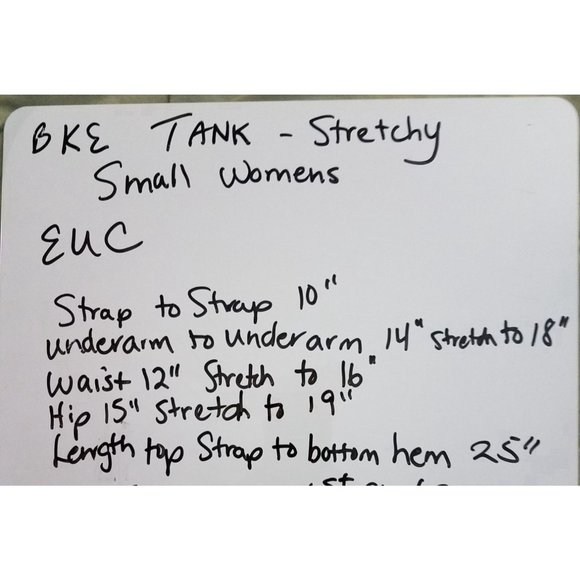 BKE TANK - Stretchy
Small Womens
EUC
Strap to Strap 10"
underarm to underarm 14" stretch to 18"
Waist 12" Stretch to 16"
Hip 15" Stretch to 19"
Length top Strap to bottom hem 25"